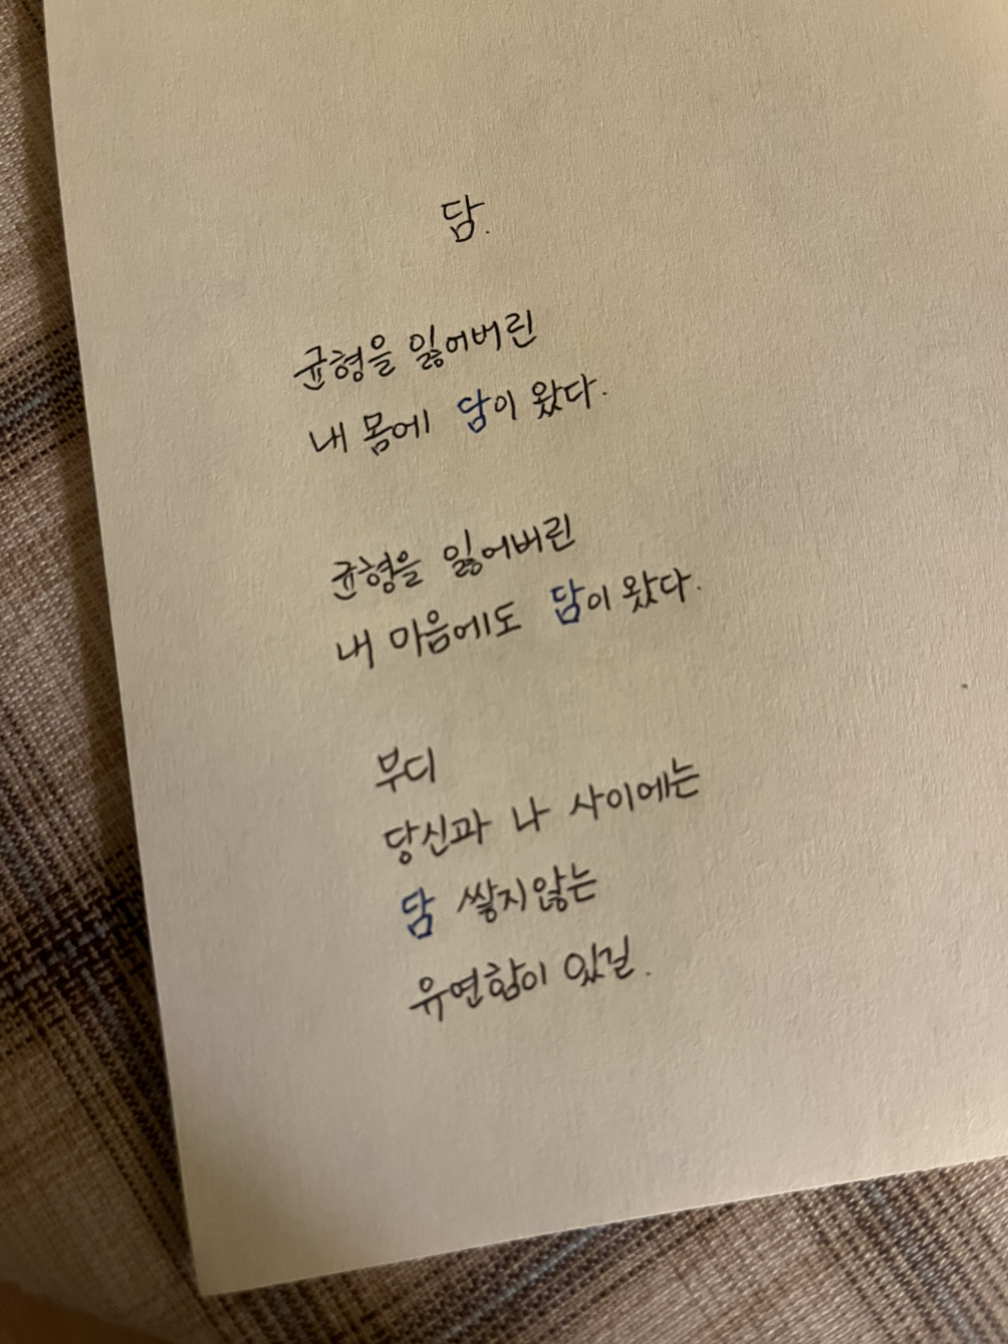 담.
균형을 잃어버린
내 몸에 담이 왔다.
균형을 잃어버린
내 마음에도 담이 왔다.
부디
당신과 나 사이에는
담 쌓지않는
유연함이 있길.